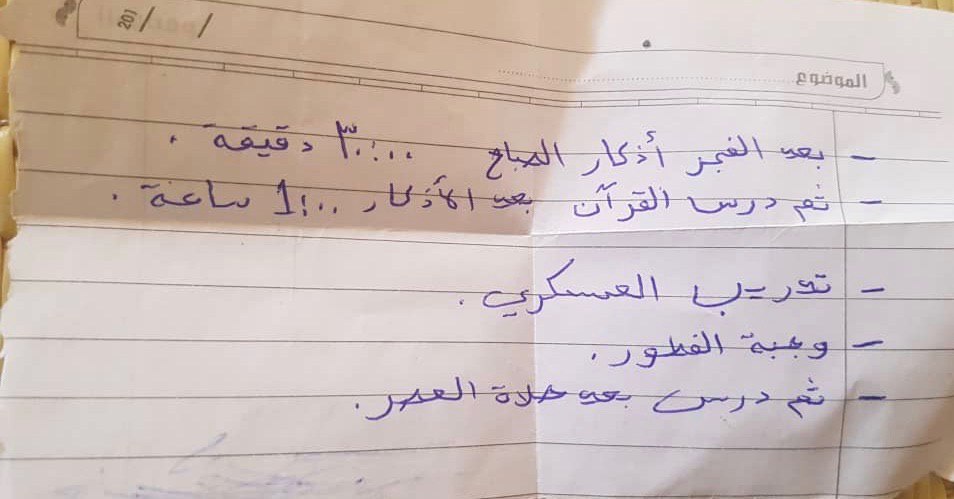 / / 201
الموضوع
- بعد الفجر أذكار الصباح ٣٠:٠٠ دقيقة .
- ثم درس القرآن بعد الأذكار 1:٠٠ ساعة .
- تدريب العسكري .
- وجبة الفطور .
- ثم درس بعد صلاة العصر .